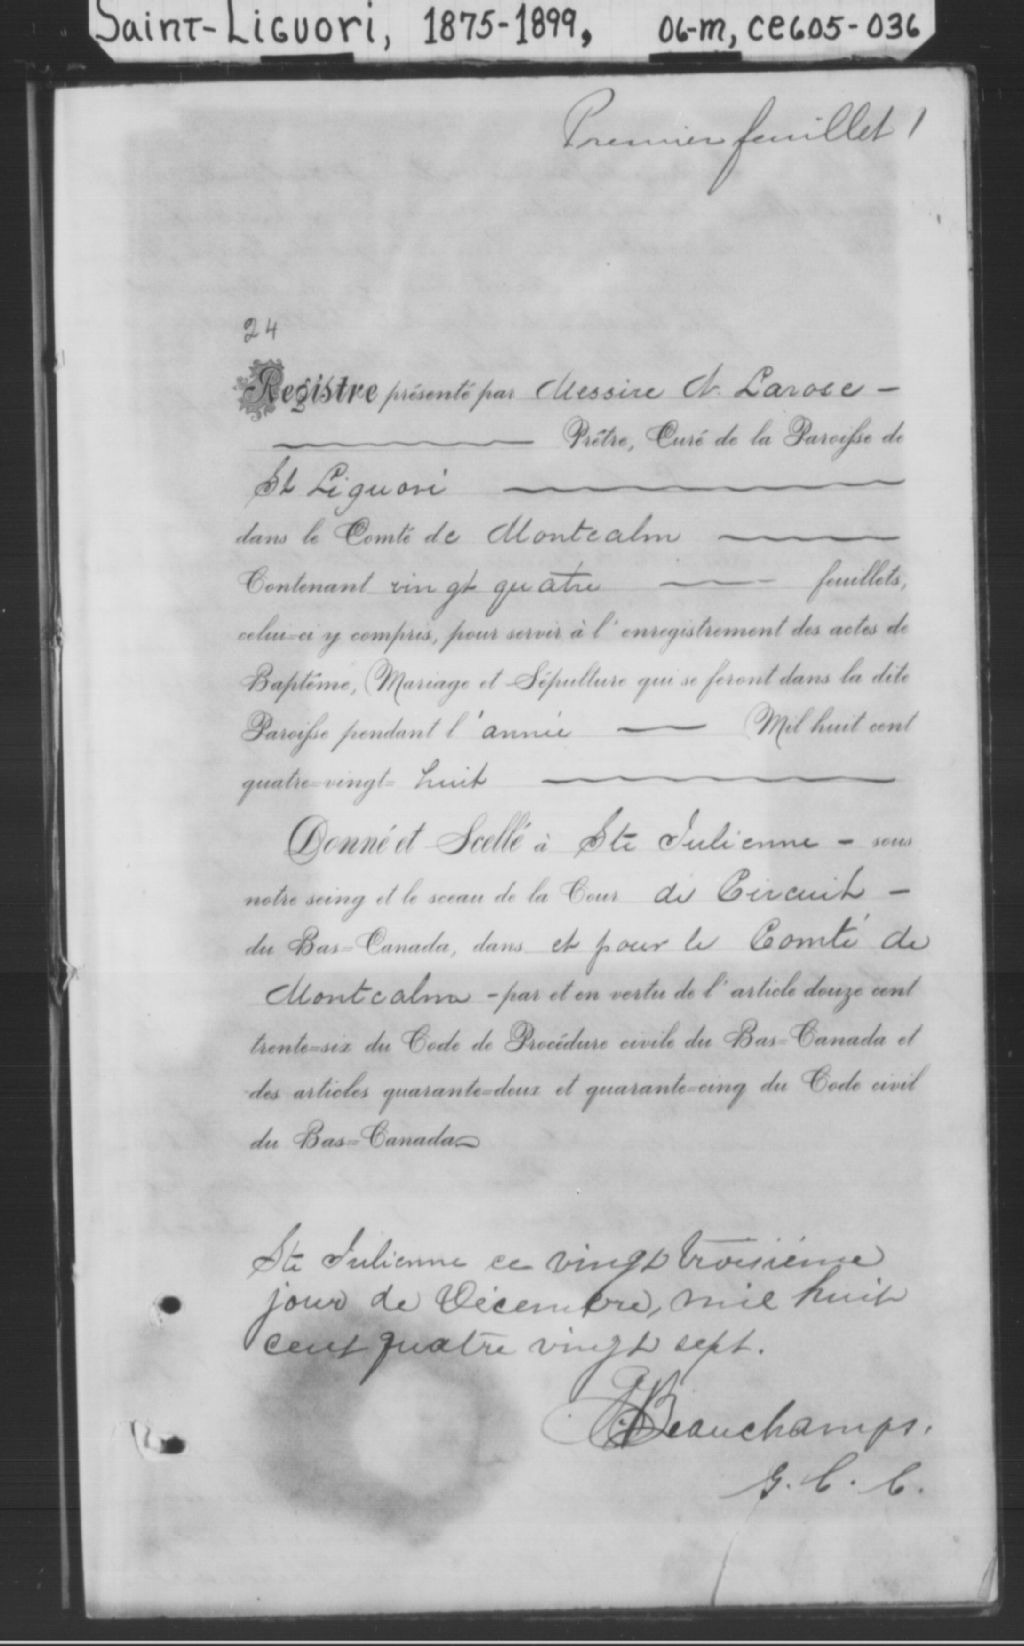 Saint-Liguori, 1875-1899, 06-M, CE605-036
Premier feuillet 1
24
Registre présenté par Messire N. Larose -
Prêtre, Curé de la Paroisse de
St Liguori
dans le Comté de Montcalm
Contenant vingt quatre feuillets,
celui-ci y compris, pour servir à l'enregistrement des actes de
Baptême, Mariage et Sépulture qui se feront dans la dite
Paroisse pendant l'année Mil huit cent
quatre-vingt-huit
Donné et Scellé à Ste Julienne - sous
notre seing et le sceau de la Cour de Circuit -
du Bas-Canada, dans et pour le Comté de
Montcalm - par et en vertu de l'article douze cent
trente-six du Code de Procédure civile du Bas-Canada et
des articles quarante-deux et quarante-cinq du Code civil
du Bas-Canada
Ste Julienne ce vingt troisième
jour de Décembre, mil huit
cent quatre vingt sept.
Beauchamps.
G. C. C.